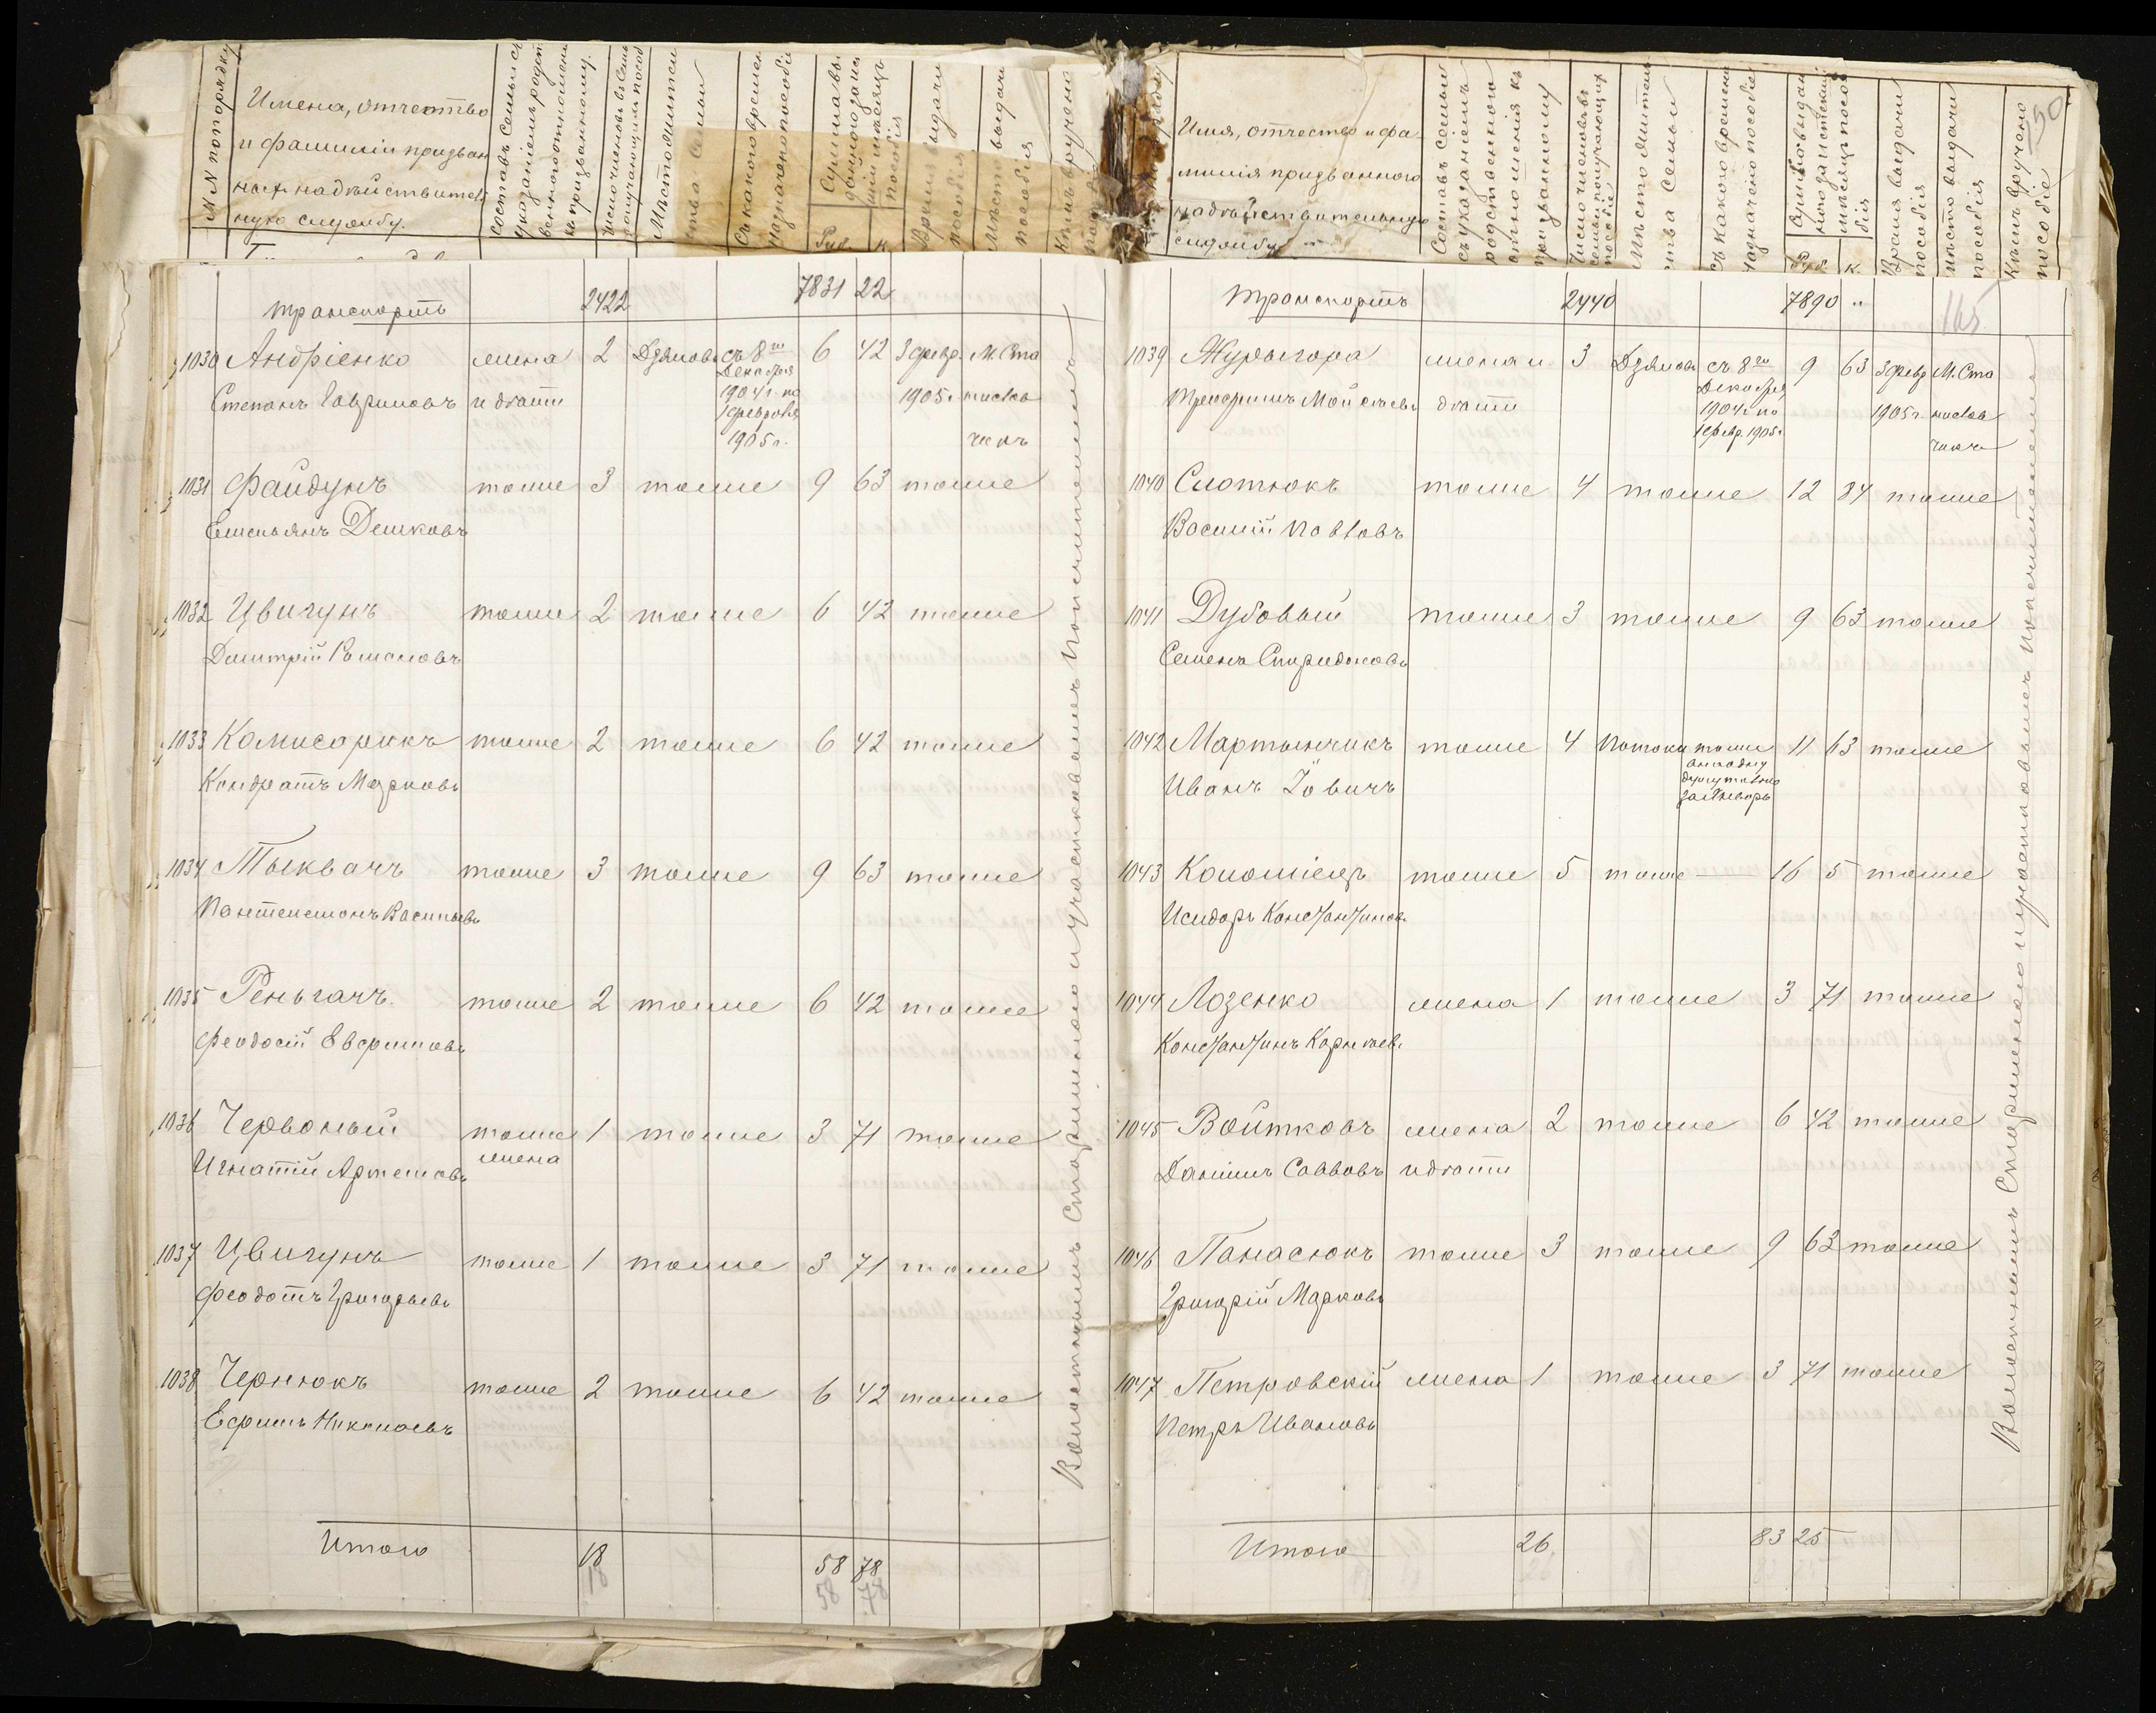 №№ по порядку
Имена, отчество
и фамиліи призван
ныхъ на дѣйствитель
ную службу.
Составъ семьи съ
указаніемъ родст
веннаго отношенія
къ призванному.
Число членовъ семьи
получающихъ пособ
Мѣсто житель
ства семьи
Съ какого времени
назначено пособіе
Сумма вы
даннаго за ис
шій мѣсяцъ
пособія
Руб. к.
Время выдачи
пособія
Мѣсто выдачи
пособія
Кѣмъ вручено
транспортъ 2422 7831 22
1030 Андріенко жена 2 Дзялов съ 8го 6 42 3 февр. М. Ста
Декабря
Степанъ Гавриловъ и дѣти 1904 г. по 1905 г. нисlав
1 февраля
1905 г. чикъ
1031 Файдунъ тоже 3 тоже 9 63 тоже
Емельянъ Демковъ
1032 Цвигунъ тоже 2 тоже 6 42 тоже
Дмитрій Романовъ
1033 Комисарикъ тоже 2 тоже 6 42 тоже
Кондратъ Марковъ
1034 Тыквачъ тоже 3 тоже 9 63 тоже
Пантелемонъ Васильевъ
1035 Реньгачъ тоже 2 тоже 6 42 тоже
Феодосій Евфимовъ
1036 Червоный тоже 1 тоже 3 71 тоже
жена
Игнатій Артемовъ
1037 Цвигунъ тоже 1 тоже 3 71 тоже
Феодотъ Григорьевъ
1038 Чернюкъ тоже 2 тоже 6 42 тоже
Ефимъ Николаевъ
Итого 18 58 78
18 58 78
Волостнымъ Старшиною и участковымъ попечителемъ
50
Имя, отчество и фа
милія призваннаго
на дѣйствительную
службу
Составъ семьи
съ указаніемъ
родственнаго
отношенія къ
призванному
Число членовъ
семьи получающихъ
пособіе
Мѣсто житель
ства семьи
Съ какого времени
назначено пособіе
мѣсяцъ пособія
Руб. к.
Время выдачи
пособія
Мѣсто выдачи
пособія
Кѣмъ вручено
пособіе
транспортъ 2440 7890 "
165
1039 Журыгора жена и 3 Дзялов съ 8го 9 63 3 февр М. Ста
Декабря
Григорій Мойсеевъ дѣти 1904 г. по 1905 г. ниslав
1 февр. 1905 г. чикъ
1040 Слотюкъ тоже 4 тоже 12 84 тоже
Василій Павловъ
1041 Дубовый тоже 3 тоже 9 63 тоже
Семенъ Спиридоновъ
1042 Мартынчикъ тоже 4 Потоки тоже 11 63 тоже
а на одну
душу только
за Январь
Иванъ Іовичъ
1043 Коломіецъ тоже 5 тоже 16 5 тоже
Исидоръ Константинов.
1044 Лозенко жена 1 тоже 3 71 тоже
Константинъ Корнѣев.
1045 Войтковъ жена 2 тоже 6 42 тоже
Даніилъ Савовъ и дѣти
1046 Панасюкъ тоже 3 тоже 9 63 тоже
Григорій Марковъ
1047 Петровскій жена 1 тоже 3 71 тоже
Петръ Ивановъ
Итого 26 83 25
Волостнымъ Старшиною и участковымъ попечителемъ